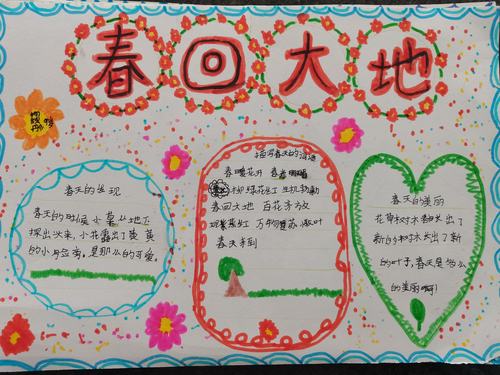 春回大地
春天的发现
春天的时候小草从地下
探出头来,小花露出了黄黄
的小身姿,是那么的可爱。
描写春天的词语
春暖花开
柳绿花红 生机勃勃
春回大地 百花齐放
万物复苏
春天来到
春天的美丽
花草树木都长出了
新的树木长出了新
的叶子,春天是多么
的美丽啊!